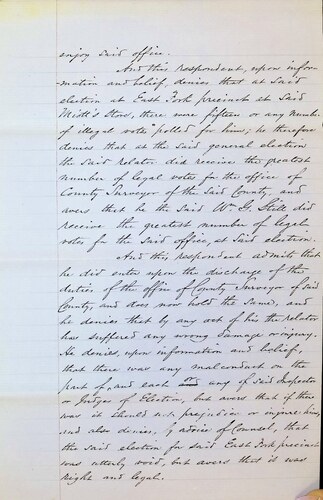 enjoy said office.
And this respondent, upon infor-
mation and belief, denies that at said
election at East Fork precinct at Said
Store, there were fifteen or any number
of illegal vote polled for him; he therefore
denies that at the said general election
the said relator did receive the greatest
number of legal votes for the office of
County Surveyor of the said County, and
avers that he the said Wm. G. Still did
receive the greatest number of legal
votes for the said office, at said election.
And this, respondent admits that
he did enter upon the discharge of the
duties of the office of County Surveyor of said
County, and does now hold the same, and
he denies that by any act of his the relator
has suffered any wrong damage or injury.
He denies, upon information and belief,
that there was any malconduct on the
part of, and each or any of said Inspector
or Judges of Election, but avers that if there
was it should not prejudice or injure him,
and also denies, by advice of Counsel, that
the said election for said East Fork precinct
was utterly void, but avers that it was
right and legal.